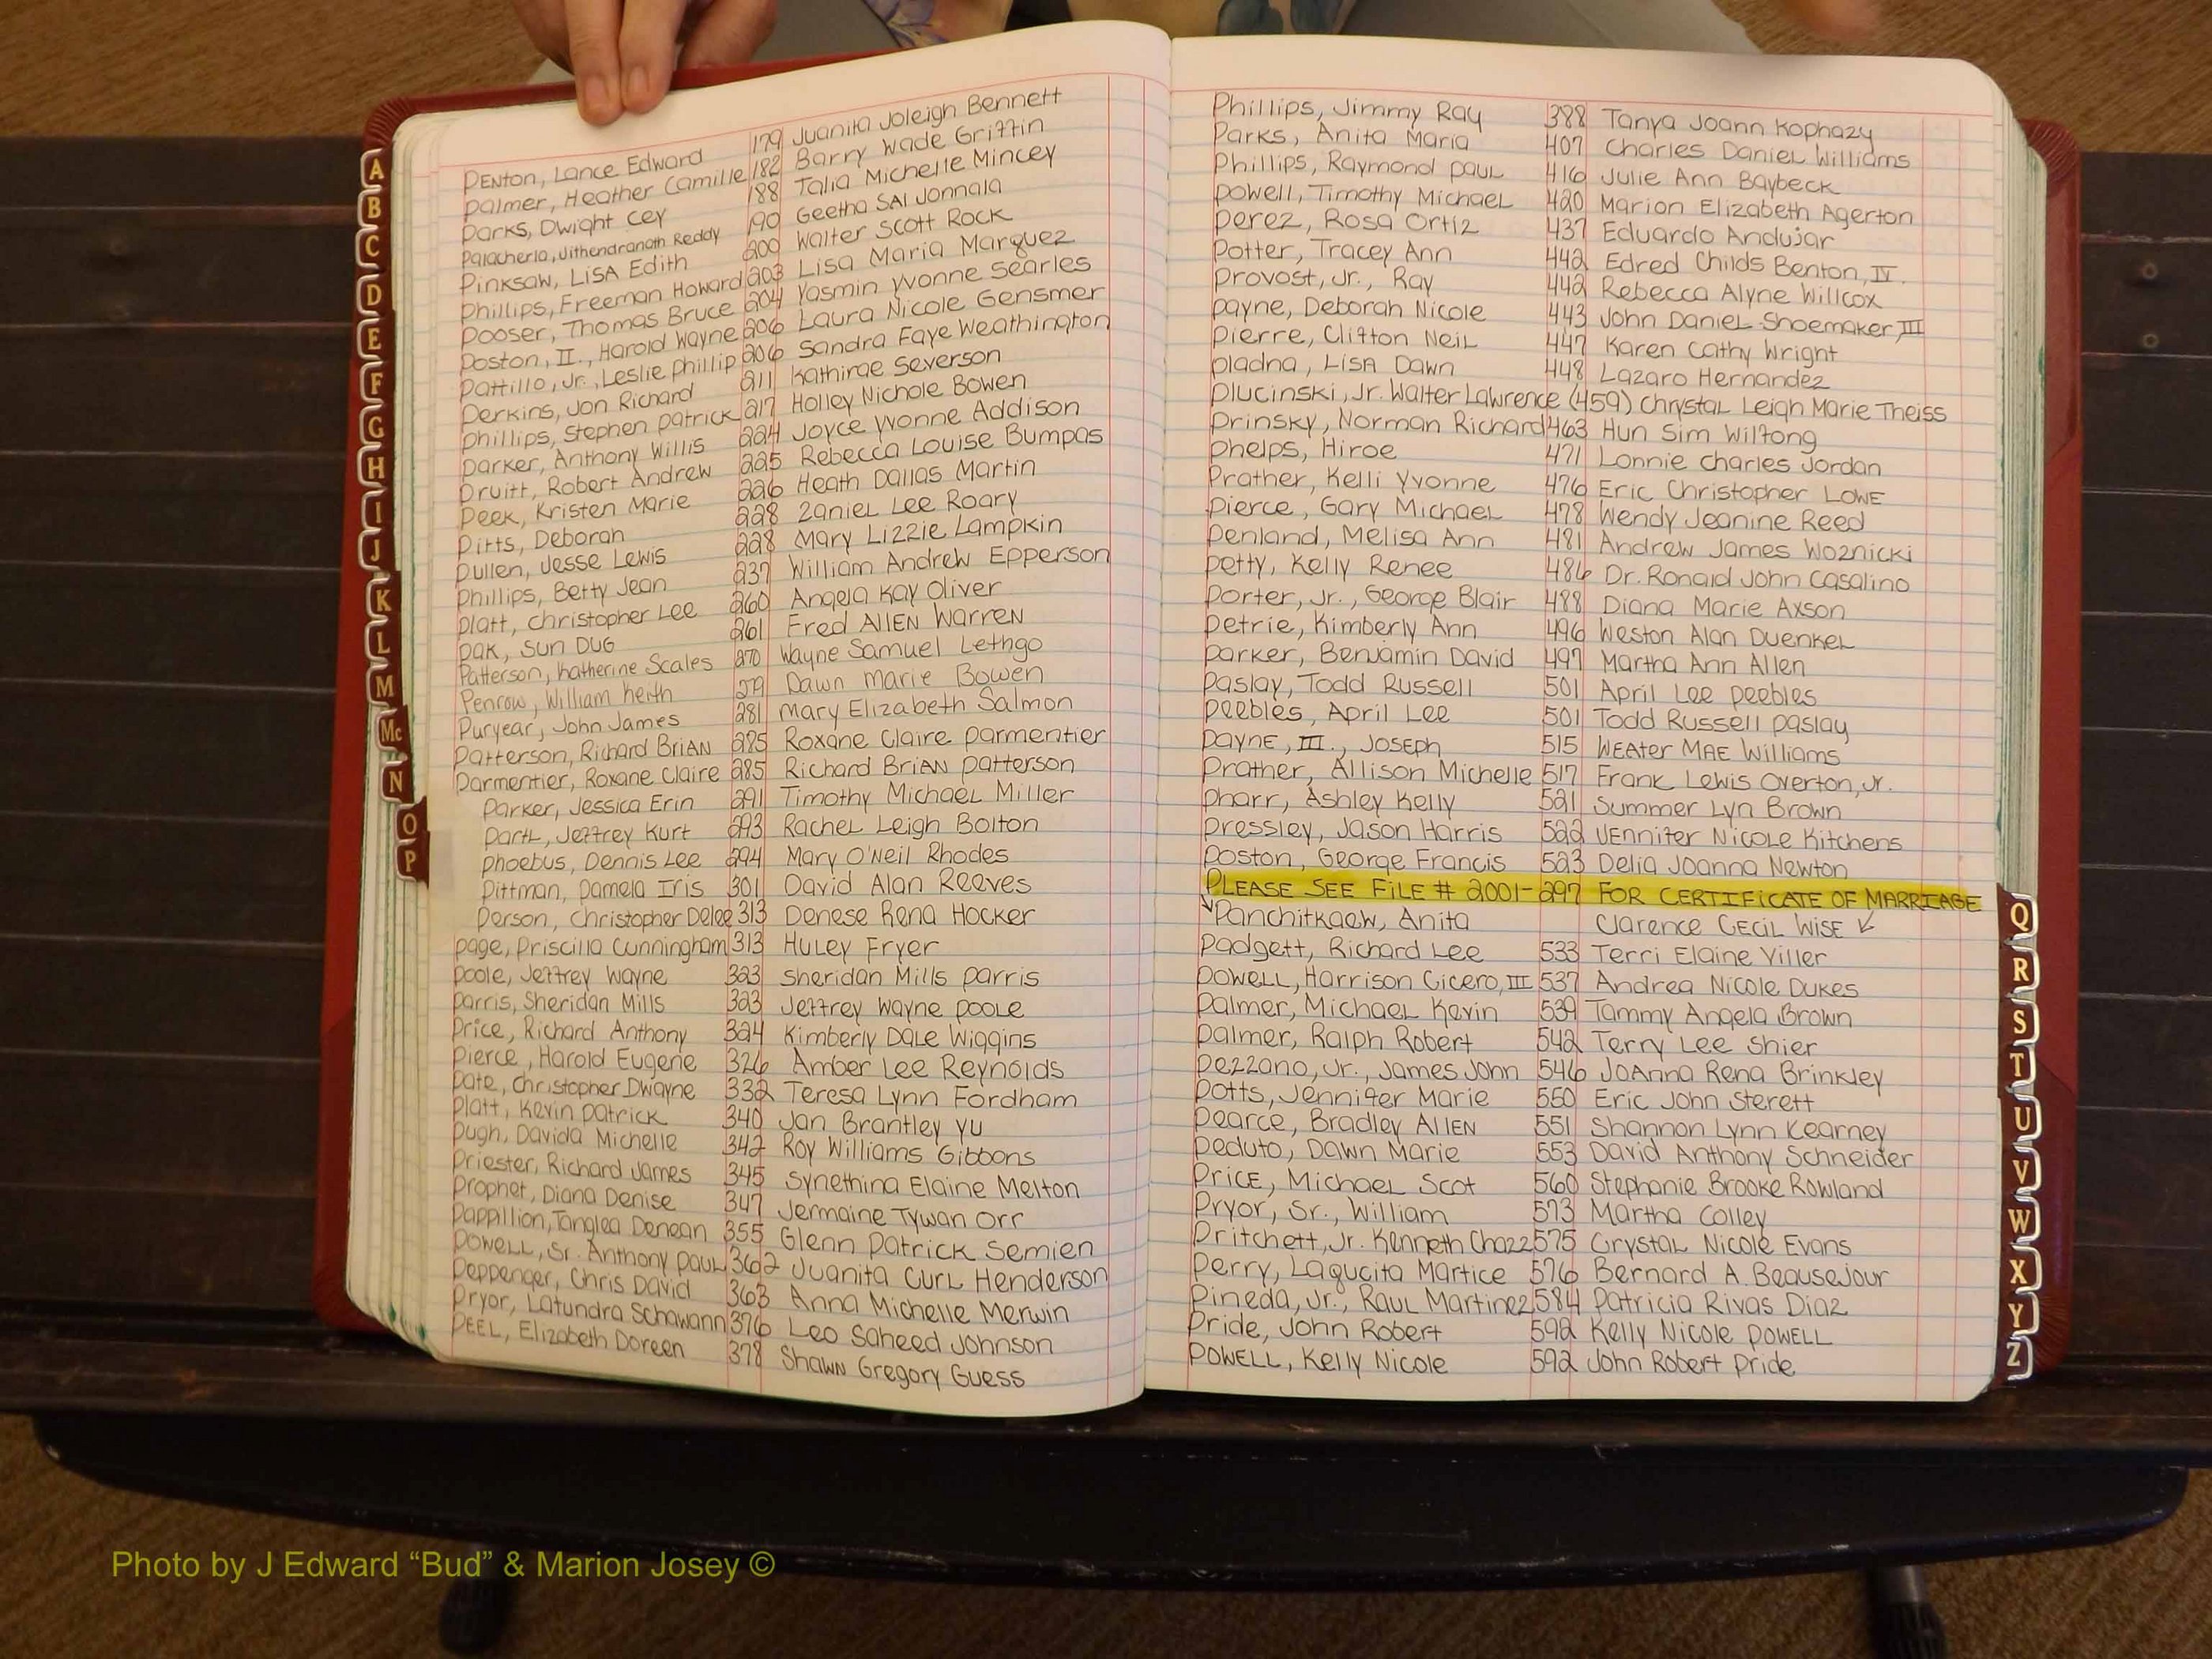 Penton, Lance Edward 179 Juanita Joleigh Bennett
Palmer, Heather Camille 182 Barry Wade Griffin
Parks, Dwight Cey 188 Talia Michelle Mincey
Palacherla, Jithendranath Reddy 190 Geetha SAI Jonnala
Pinksaw, LiSA Edith 200 Walter Scott Rock
Phillips, Freeman Howard 203 Lisa Maria Marquez
Pooser, Thomas Bruce 204 Yasmin Yvonne Searles
Poston, II., Harold Wayne 206 Laura Nicole Gensmer
Pattillo, Jr., Leslie Phillip 206 Sandra Faye Weathington
Perkins, Jon Richard 211 Kathirae Severson
Phillips, Stephen Patrick 217 Holley Nichole Bowen
Parker, Anthony Willis 224 Joyce Yvonne Addison
Pruitt, Robert Andrew 225 Rebecca Louise Bumpas
Peek, Kristen Marie 226 Heath Dallas Martin
Pitts, Deborah 228 Zaniel Lee Roary
Pullen, Jesse Lewis 228 Mary Lizzie Lampkin
Phillips, Betty Jean 237 William Andrew Epperson
Platt, Christopher Lee 260 Angela Kay Oliver
Pak, Sun Dug 261 Fred Allen Warren
Patterson, Katherine Scales 270 Wayne Samuel Lethgo
Penrow, William Keith 279 Dawn Marie Bowen
Puryear, John James 281 Mary Elizabeth Salmon
Patterson, Richard Brian 285 Roxane Claire Parmentier
Parmentier, Roxane Claire 285 Richard Brian Patterson
Parker, Jessica Erin 291 Timothy Michael Miller
Partl, Jeffrey Kurt 293 Rachel Leigh Bolton
Phoebus, Dennis Lee 294 Mary O'Neil Rhodes
Pittman, Pamela Iris 301 David Alan Reeves
Person, Christopher Delee 313 Denese Rena Hocker
Page, Priscilla Cunningham 313 Huley Fryer
Poole, Jeffrey Wayne 323 Sheridan Mills Parris
Parris, Sheridan Mills 323 Jeffrey Wayne Poole
Price, Richard Anthony 324 Kimberly Dale Wiggins
Pierce, Harold Eugene 326 Amber Lee Reynolds
Pate, Christopher Dwayne 332 Teresa Lynn Fordham
Platt, Kevin Patrick 340 Jan Brantley Yu
Pugh, Davida Michelle 342 Roy Williams Gibbons
Priester, Richard James 345 Synethina Elaine Melton
Prophet, Diana Denise 347 Jermaine Tywan Orr
Pappillion, Tanglea Denean 355 Glenn Patrick Semien
Powell, Sr. Anthony Paul 362 Juanita Curl Henderson
Peppenger, Chris David 363 Anna Michelle Merwin
Pryor, Latundra Schawann 376 Leo Saheed Johnson
Peel, Elizabeth Doreen 378 Shawn Gregory Guess
Phillips, Jimmy Ray 388 Tanya Joann Kophazy
Parks, Anita Maria 407 Charles Daniel Williams
Phillips, Raymond Paul 416 Julie Ann Baybeck
Powell, Timothy Michael 420 Marion Elizabeth Agerton
Perez, Rosa Ortiz 437 Eduardo Andujar
Potter, Tracey Ann 442 Edred Childs Benton, IV.
Provost, Jr., Ray 442 Rebecca Alyne Willcox
Payne, Deborah Nicole 443 John Daniel Shoemaker, III
Pierre, Clifton Neil 447 Karen Cathy Wright
Pladna, Lisa Dawn 448 Lazaro Hernandez
Plucinski, Jr. Walter Lawrence (459) Chrystal Leigh Marie Theiss
Prinsky, Norman Richard 463 Hun Sim Wilfong
Phelps, Hiroe 471 Lonnie Charles Jordan
Prather, Kelli Yvonne 476 Eric Christopher Lowe
Pierce, Gary Michael 478 Wendy Jeanine Reed
Penland, Melisa Ann 481 Andrew James Woznicki
Petty, Kelly Renee 486 Dr. Ronald John Casalino
Porter, Jr., George Blair 488 Diana Marie Axson
Petrie, Kimberly Ann 496 Weston Alan Duenkel
Parker, Benjamin David 497 Martha Ann Allen
Paslay, Todd Russell 501 April Lee Peebles
Peebles, April Lee 501 Todd Russell Paslay
Payne, III., Joseph 515 Weater Mae Williams
Prather, Allison Michelle 517 Frank Lewis Overton, Jr.
Pharr, Ashley Kelly 521 Summer Lyn Brown
Pressley, Jason Harris 522 Jennifer Nicole Kitchens
Poston, George Francis 523 Delia Joanna Newton
PLEASE SEE FILE # 2001-297 FOR CERTIFICATE OF MARRIAGE
Panchitkaew, Anita Clarence Cecil Wise
Padgett, Richard Lee 533 Terri Elaine Viller
Powell, Harrison Cicero, III 537 Andrea Nicole Dukes
Palmer, Michael Kevin 539 Tammy Angela Brown
Palmer, Ralph Robert 542 Terry Lee Shier
Pezzano, Jr., James John 546 JoAnna Rena Brinkley
Potts, Jennifer Marie 550 Eric John Sterett
Pearce, Bradley Allen 551 Shannon Lynn Kearney
Peduto, Dawn Marie 553 David Anthony Schneider
Price, Michael Scot 560 Stephanie Brooke Rowland
Pryor, Sr., William 573 Martha Colley
Pritchett, Jr. Kenneth Chazz 575 Crystal Nicole Evans
Perry, Laqucita Martice 576 Bernard A. Beausejour
Pineda, Jr., Raul Martinez 584 Patricia Rivas Diaz
Pride, John Robert 592 Kelly Nicole Powell
Powell, Kelly Nicole 592 John Robert Pride
A
B
C
D
E
F
G
H
I
J
K
L
M
Mc
N
O
P
Q
R
S
T
U
V
W
X
Y
Z
Photo by J Edward “Bud” & Marion Josey ©